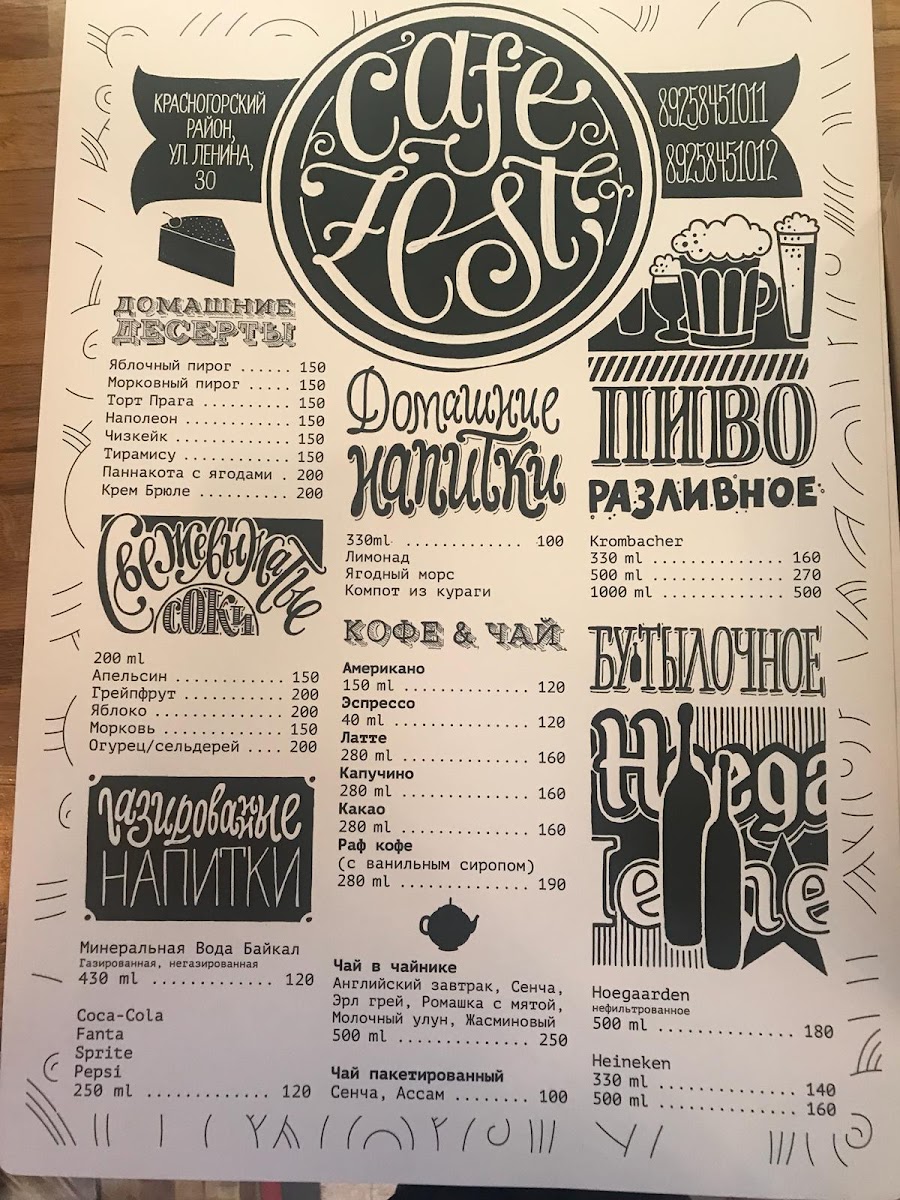 КРАСНОГОРСКИЙ
РАЙОН,
УЛ. ЛЕНИНА,
30
Cafe
Zest
89258451011
89258451012
ДОМАШНИЕ
ДЕСЕРТЫ
Яблочный пирог ...... 150
Морковный пирог ..... 150
Торт Прага .......... 150
Наполеон ............ 150
Чизкейк ............. 150
Тирамису ............ 150
Паннакота с ягодами . 200
Крем Брюле .......... 200
Свежевыжатые
соки
200 ml
Апельсин ............ 150
Грейпфрут ........... 200
Яблоко .............. 200
Морковь ............. 150
Огурец/сельдерей .... 200
газированные
НАПИТКИ
Минеральная Вода Байкал
Газированная, негазированная
430 ml ............. 120
Coca-Cola
Fanta
Sprite
Pepsi
250 ml ............. 120
Домашние
напитки
330ml ............. 100
Лимонад
Ягодный морс
Компот из кураги
КОФЕ & ЧАЙ
Американо
150 ml .............. 120
Эспрессо
40 ml ............... 120
Латте
280 ml .............. 160
Капучино
280 ml .............. 160
Какао
280 ml .............. 160
Раф кофе
(с ванильным сиропом)
280 ml .............. 190
Чай в чайнике
Английский завтрак, Сенча,
Эрл грей, Ромашка с мятой,
Молочный улун, Жасминовый
500 ml .............. 250
Чай пакетированный
Сенча, Ассам ........ 100
ПИВО
РАЗЛИВНОЕ
Krombacher
330 ml .............. 160
500 ml .............. 270
1000 ml ............. 500
БУТЫЛОЧНОЕ
Hoega
Heine
Hoegaarden
нефильтрованное
500 ml .............. 180
Heineken
330 ml .............. 140
500 ml .............. 160